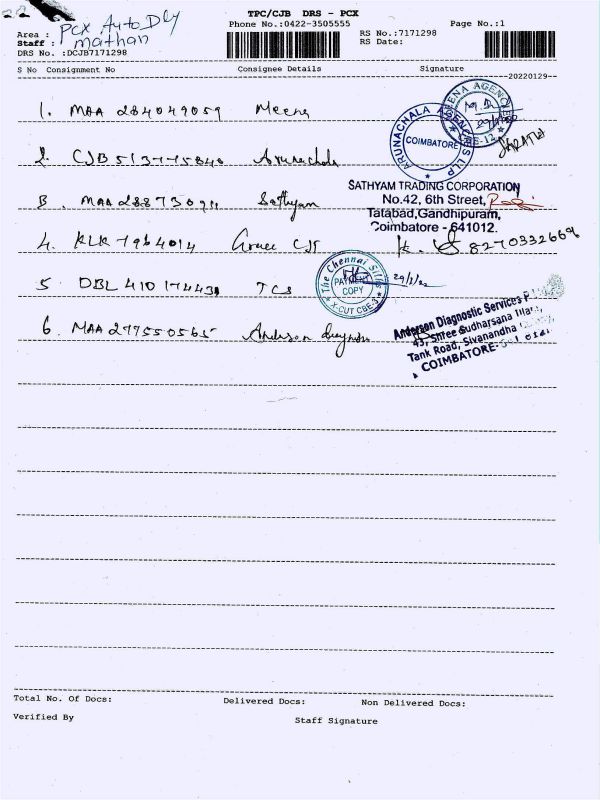 22
TPC/CJB DRS - PCX
Phone No.:0422-3505555
Page No.:1
Area : PCX Auto Dly
Staff : Mathan
DRS No. :DCJB7171298
RS No.:7171298
RS Date:
S No Consignment No Consignee Details Signature
20220129
1. MAA 284049059 Meena
MEENA AGENC
CBE-12
ARUNACHALA AGENCIES LLP
COIMBATORE
2. CJB 513775840 Arunachala
3. MAA 288730911 Sathyam
SATHYAM TRADING CORPORATION
No.42, 6th Street,
Tatabad,Gandhipuram,
Coimbatore - 641012.
4. KLK 7964014 Grace CJS
8270332669
5 DBL 410174431 TCS
The Chennai Silks
PAYMENT
COPY
X-CUT CBE-3
29/1/22
6. MAA 277550565 Anderson
Anderson Diagnostic Services P
45, Shree Sudharsana
Tank Road, Sivanandha
COIMBATORE-
Total No. Of Docs: Delivered Docs: Non Delivered Docs:
Verified By Staff Signature